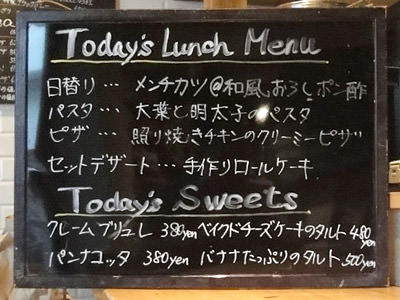 Today's Lunch Menu
日替り … メンチカツ@和風おろしポン酢
パスタ … 大葉と明太子のパスタ
ピザ … 照り焼きチキンのクリーミーピザ
セットデザート … 手作りロールケーキ
Today's Sweets
クレームブリュレ 380yen ベイクドチーズケーキのタルト 480yen
パンナコッタ 380yen バナナたっぷりのタルト 500yen